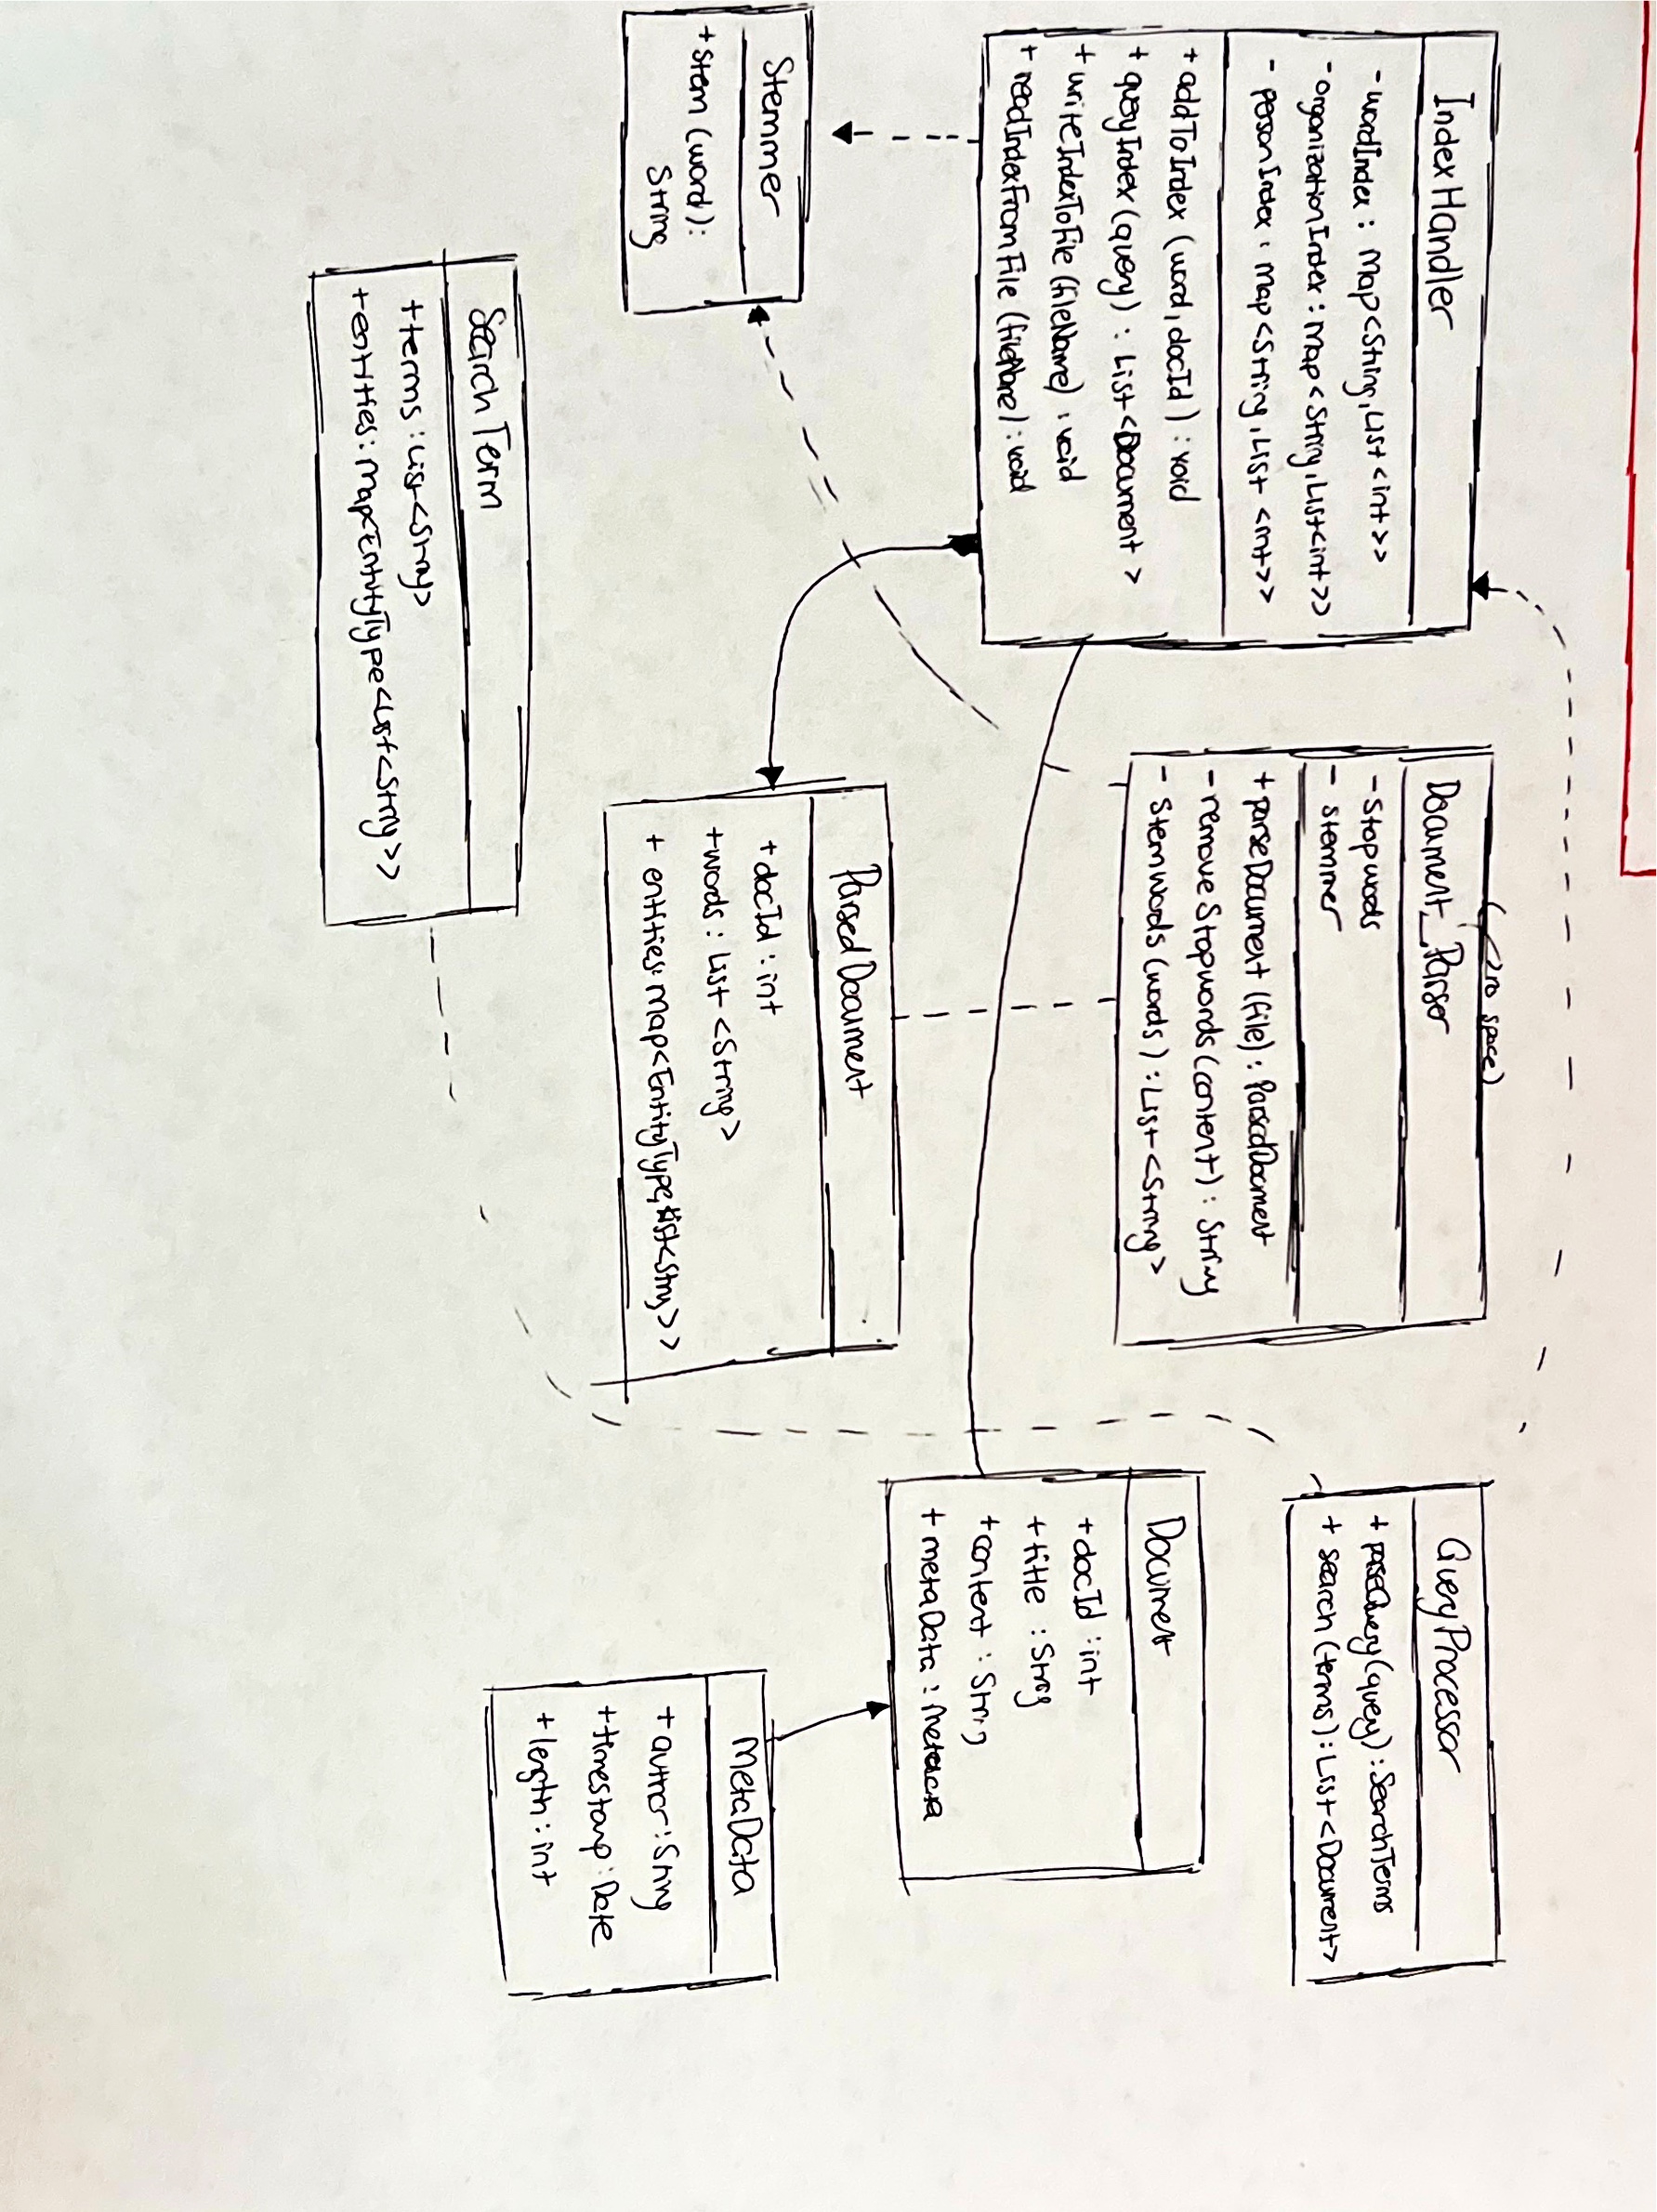 IndexHandler
- wordIndex : Map<String, List<int>>
- organizationIndex : Map<String, List<int>>
- personIndex : Map<String, List <int>>
+ addToIndex (word, docId) : void
+ queryIndex (query) : List<Document >
+ writeIndexToFile (fileName) : void
+ readIndexFromFile (fileName) : void
(no space)
Document Parser
- Stopwords
- stemmer
+ parseDocument (file) : ParsedDocment
- remove Stopwords (content) : String
- Stemwords (words) : List <String>
QueryProcessor
+ parseQuery (query) : SearchTerms
+ search (terms) : List <Document>
Document
+ docId : int
+ title : String
+ content : String
+ metaData :
Stemmer
+ stem (word) :
String
Parsed Document
+ docId : int
+ words : List <String>
+ entities: Map<EntityType, List<String>>
MetaData
+ author : String
+ timestamp : Date
+ length : int
Search Term
+ terms : List<String>
+ entities : Map<EntityType <List<String>>